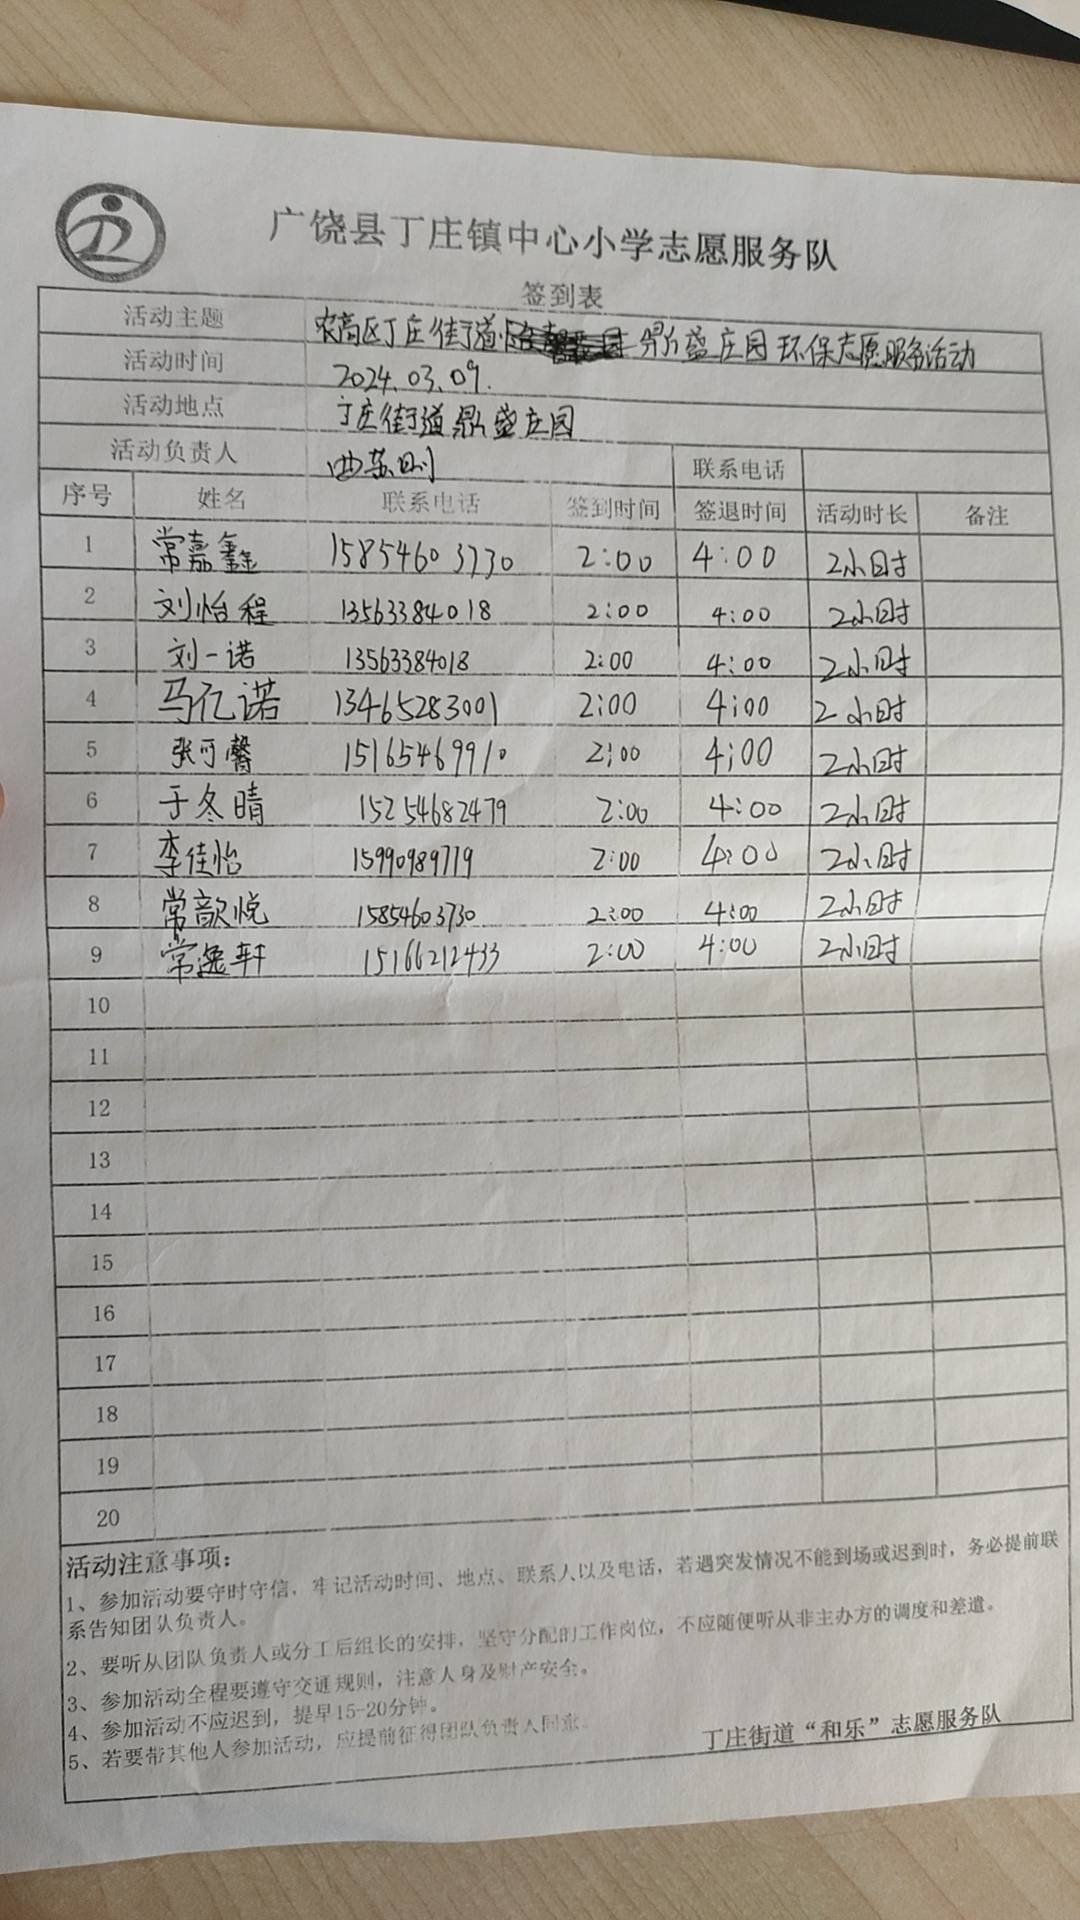 广饶县丁庄镇中心小学志愿服务队
签到表
活动主题 农高区丁庄街道 鼎盛庄园环保志愿服务活动
活动时间 2024.03.09.
活动地点 丁庄街道鼎盛庄园
活动负责人 联系电话
序号 姓名 联系电话 签到时间 签退时间 活动时长 备注
1 常嘉鑫 15854603730 2:00 4:00 2小时
2 刘怡程 13563384018 2:00 4:00 2小时
3 刘一诺 13563384018 2:00 4:00 2小时
4 马亿诺 13465283001 2:00 4:00 2小时
5 张可馨 15165469910 2:00 4:00 2小时
6 于冬晴 15254682479 2:00 4:00 2小时
7 李佳怡 15990989719 2:00 4:00 2小时
8 常歆悦 15854603730 2:00 4:00 2小时
9 常逸轩 15166212433 2:00 4:00 2小时
10
11
12
13
14
15
16
17
18
19
20
活动注意事项：
1、参加活动要守时守信，牢记活动时间、地点、联系人以及电话，若遇突发情况不能到场或迟到时，务必提前联
系告知团队负责人。
2、要听从团队负责人或分工后组长的安排，坚守分配的工作岗位，不应随便听从非主办方的调度和差遣。
3、参加活动全程要遵守交通规则，注意人身及财产安全。
4、参加活动不应迟到，提早15-20分钟。
5、若要带其他人参加活动，应提前征得团队负责人同意。
丁庄街道“和乐”志愿服务队